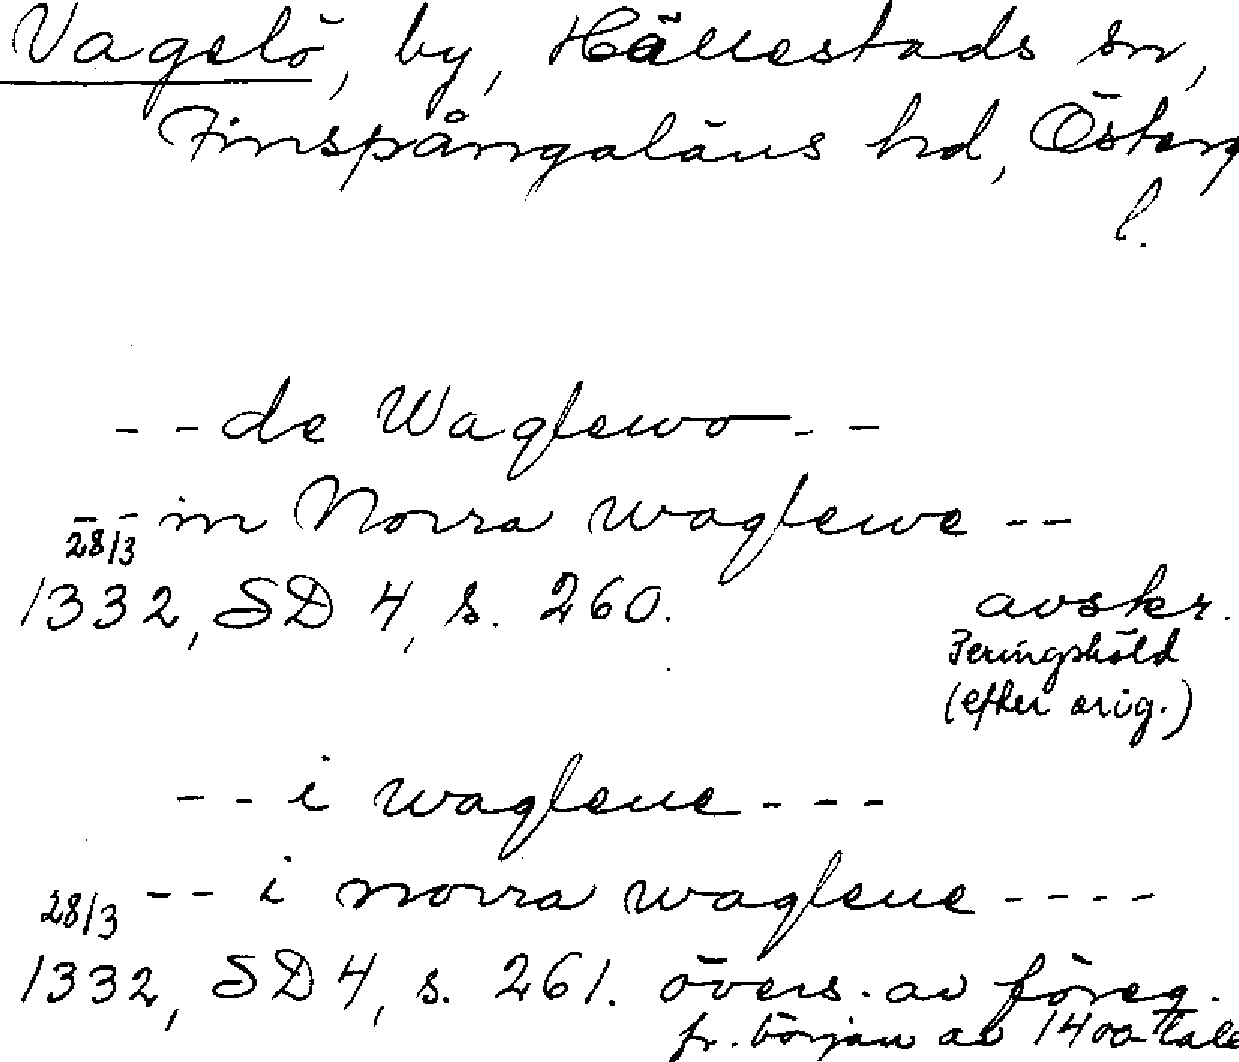 Vagelö, by, Hällestads sn,
Finspångaläns hd, Österg
l.
- - de Waglewo - -
- - in Norra waglewe - -
28/3
1332, SD 4, s. 260. avskr.
Peringsköld
(efter orig.)
- - i wagleue - - -
28/3 - - i norra wagleue - - - -
1332, SD 4, s. 261. övers. av föreg.
fr. början av 1400-tale